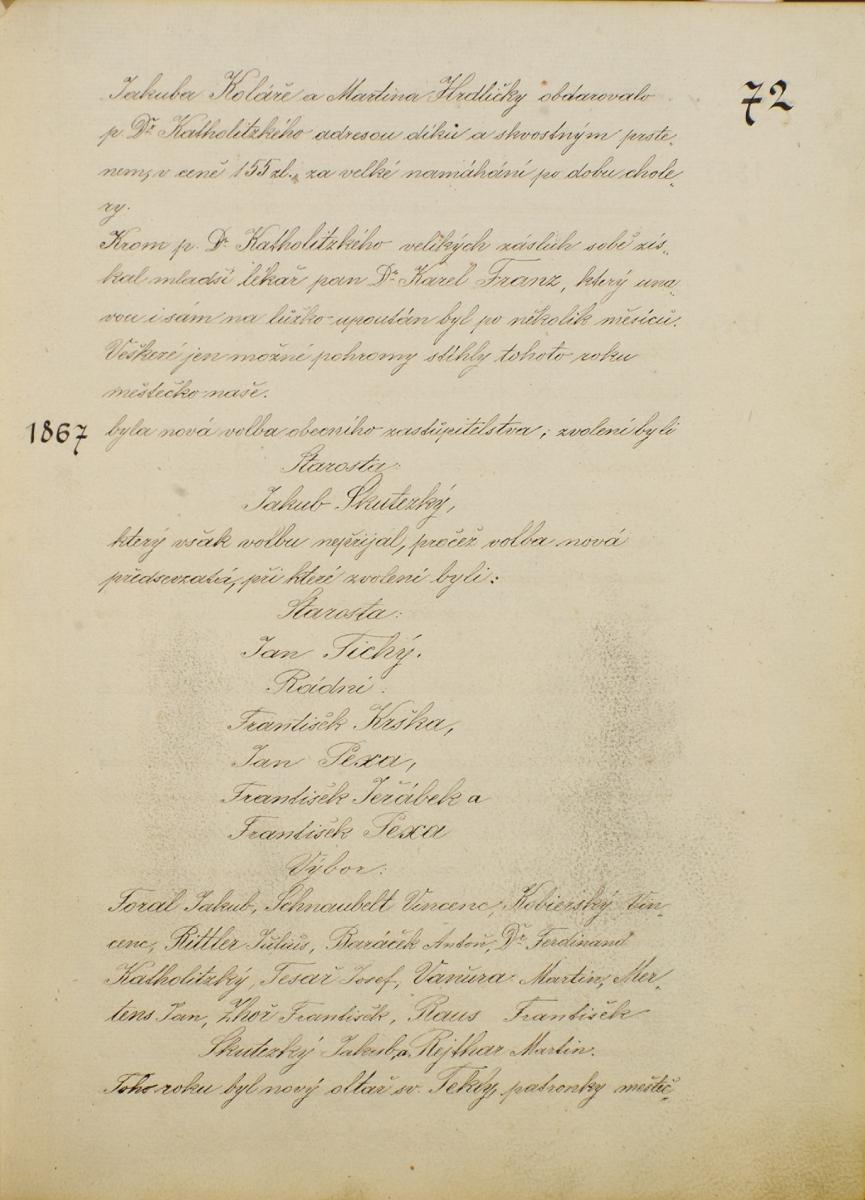 72
Jakuba Koláře a Martina Hrdličky obdarovalo
p. Dr. Katholitzkého adresou díků a skvostným prste„
nem, v ceně 155 zl., za velké namáhání po dobu chole„
ry.
Krom p. Dr. Katholitzkého velikých záslüh sobě zís„
kal mladší lékař pan Dr. Karel Franz, který una„
vou i sám na lůžko upoután byl po několik měsíců.
Veškeré jen možné pohromy stihly tohoto roku
městečko naše.
1867 byla nová volba obecního zastupitelstva; zvoleni byli
Starosta:
Jakub Skutezký,
který však volbu nepřijal, pročež volba nová
předsevzatá, při které zvoleni byli:
Starosta:
Jan Tichý.
Rádní:
František Krška,
Jan Pexa,
František Jeřábek a
František Pexa
Výbor:
Foral Jakub, Schnaubelt Vincenc, Kobierský Vin„
cenc, Rittler Julius, Baráček Anton, Dr. Ferdinand
Katholitzký, Tesař Josef, Vaňura Martin, Mer„
tens Jan, Zhoř František, Raus František
Skutezký Jakub, a Rejthar Martin.
Toho roku byl nový oltař sv. Tekly, patronky městeč„